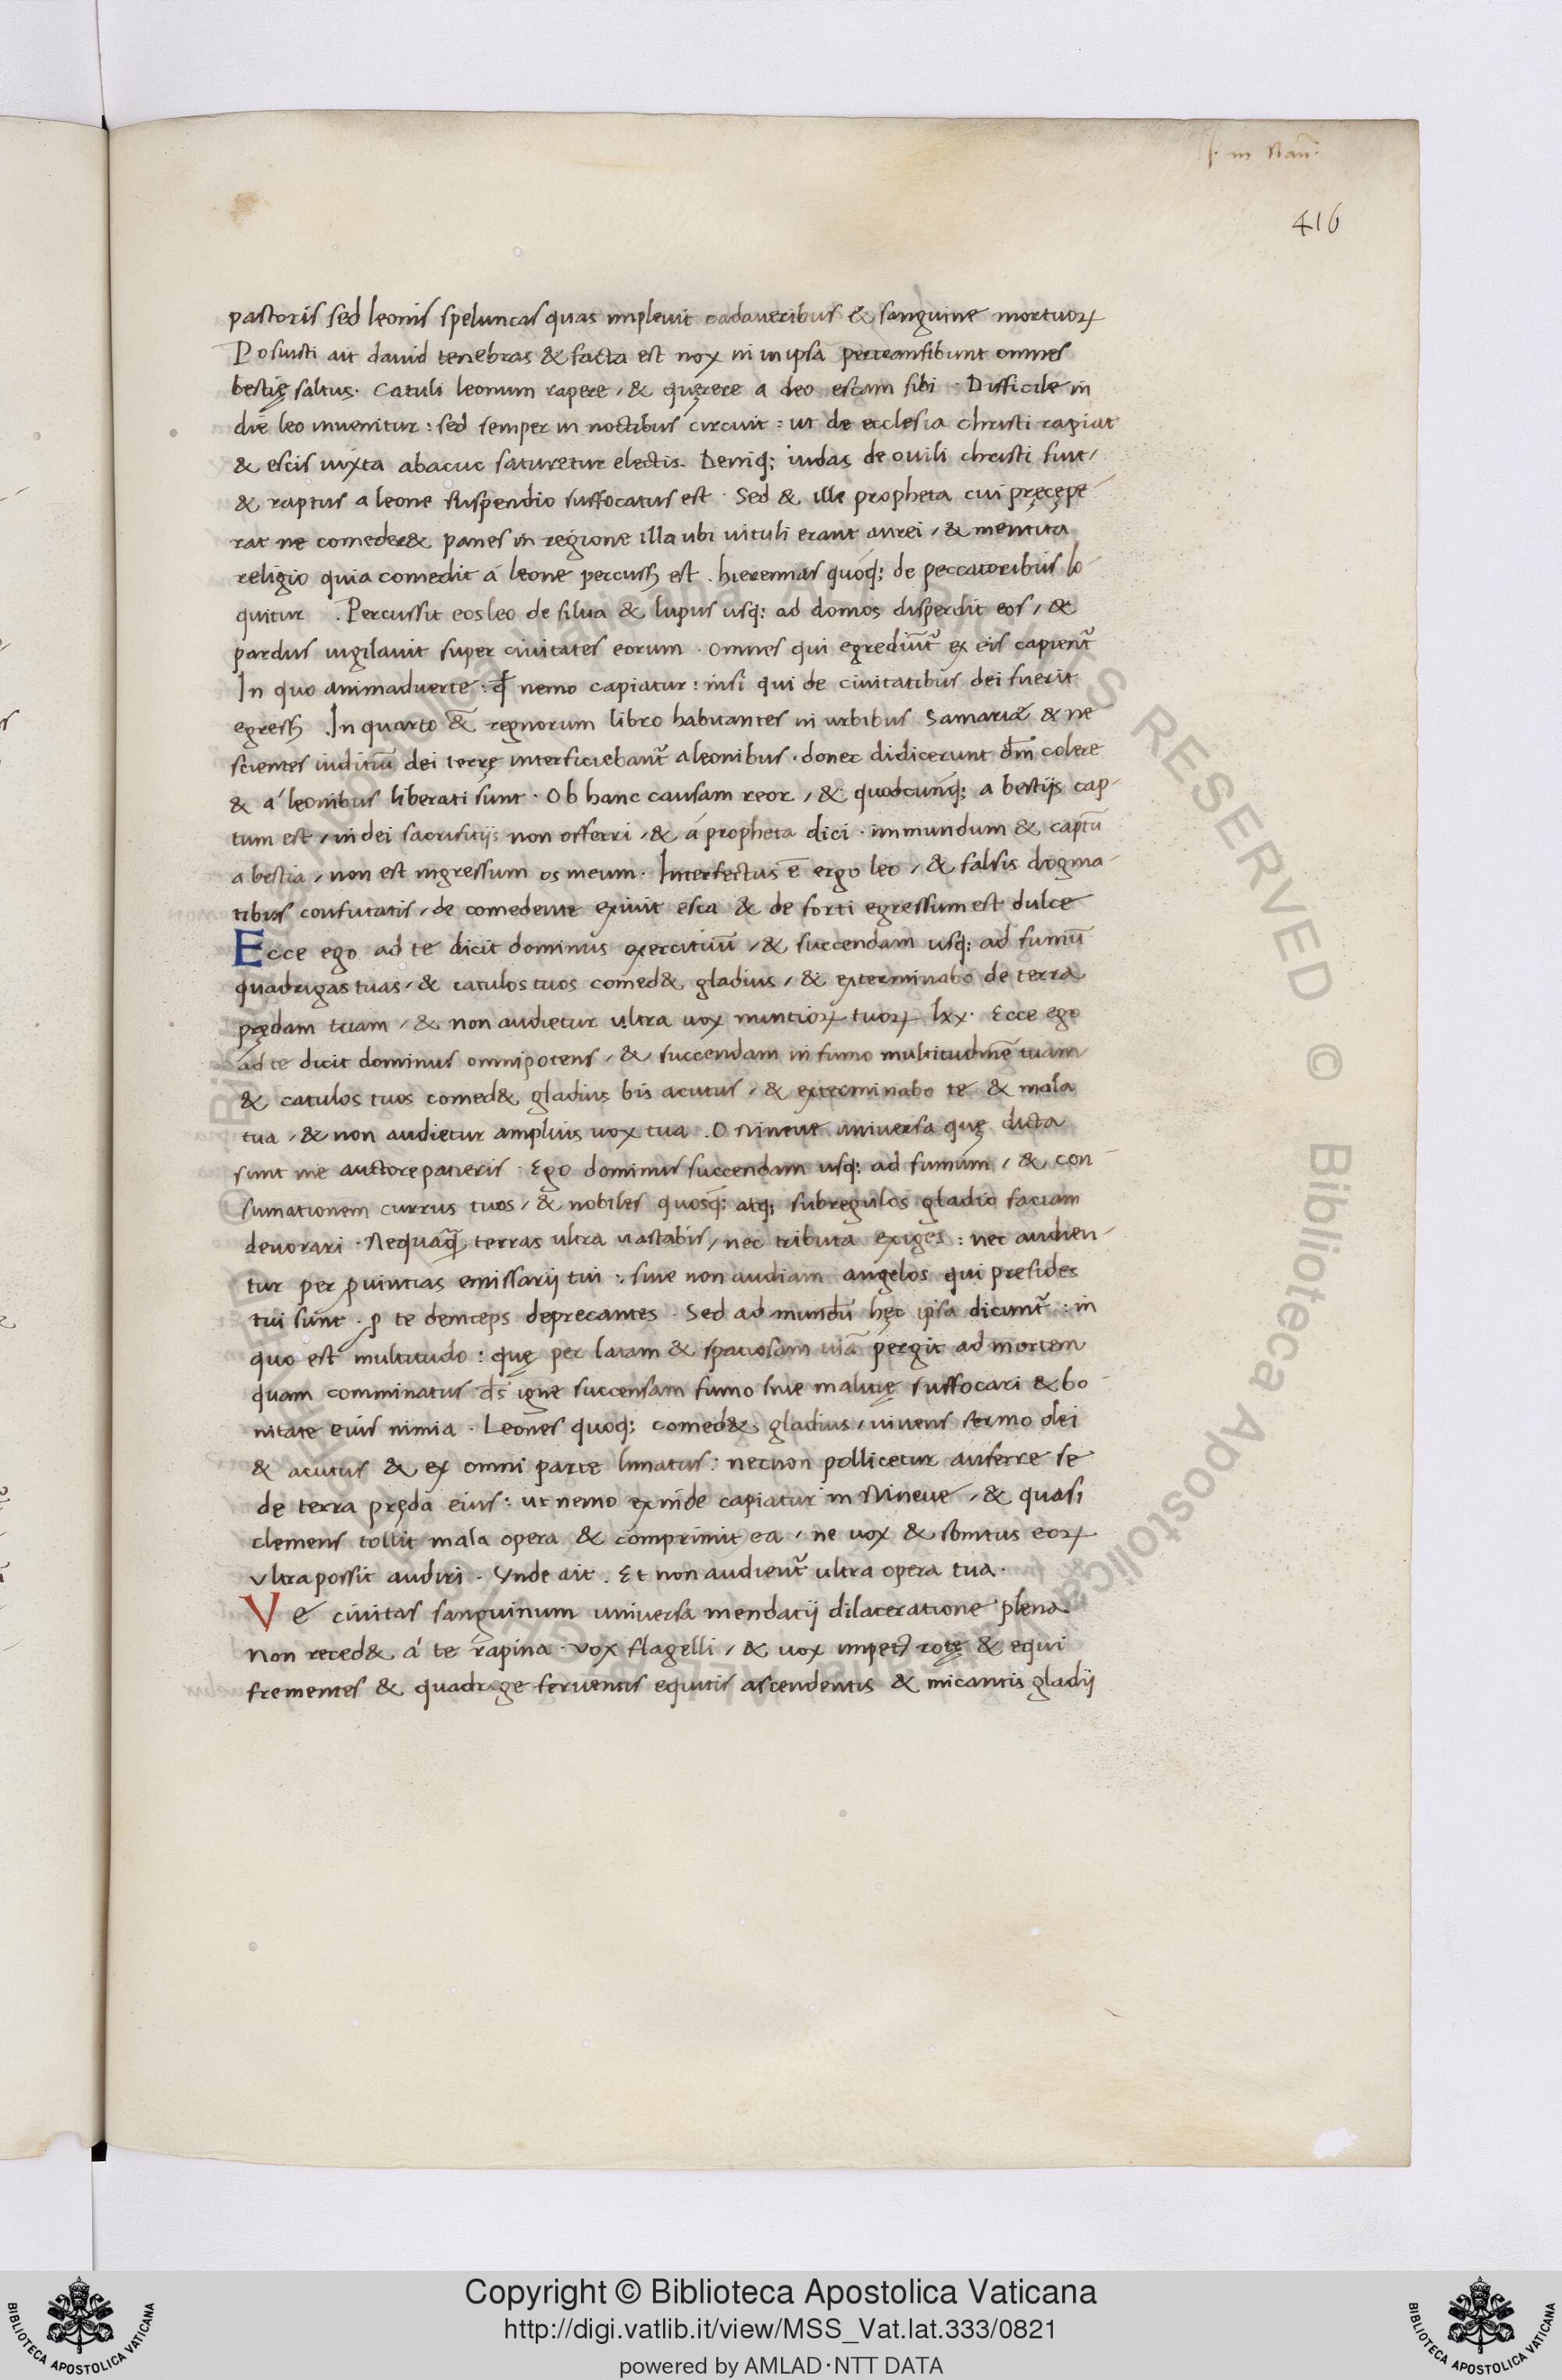 s. in Naũ.
416
pastoris sed leonis speluncas quas impleuit cadaueribus & sanguine mortuoꝝ
Posuisti ait dauid tenebras & facta est nox in in ipsa pertransibunt omnes
bestię saltus. Catuli leonum rapere, & quęrere a deo escam sibi. Difficile in
die leo inuenitur: sed semper in noctibus circuit: ut de ecclesia christi rapiat
& escis iuxta abacuc saturetur electis. Deniq; iudas de ouili christi fuit,
& raptus a leone suspendio suffocatus est. Sed & ille propheta cui pręcępe
rat ne comeder& panes in regione illa ubi uituli erant aurei, & mentita
religio quia comedit á leone percussꝰ est. hieremias quoq; de peccatoribus lo
quitur. Percussit eos leo de silua & lupus usq; ad domos disperdit eos, &
pardus uigilauit super ciuitates eorum. Omnes qui egrediũt᷑ ex eis capient᷑
In quo animaduerte: ꝙ nemo capiatur: nisi qui de ciuitatibus dei fuerit
egressꝰ. In quarto &̃ regnorum libro habitantes in urbibus Samariæ & ne
scientes iuditiũ dei terrę interficiebant᷑ a leonibus. donec didicerunt dm̃ colere
& á leonibus liberati sunt. Ob hanc causam reor, & quodcunq; a bestijs cap-
tum est, in dei sacrifitijs non offerri, & á propheta dici. immundum & captũ
a bestia, non est ingressum os meum. Interfectus ē ergo leo, & falsis dogma-
tibus confutatis, de comedente exiuit esca & de forti egressum est dulce
Ecce ego ad te dicit dominus exercituũ, & succendam usq; ad fumũ
quadrigas tuas, & catulos tuos comed& gladius, & exterminabo de terra
prędam tuam, & non audietur ultra uox nuntioꝝ tuoꝝ lxx. Ecce ego
ad te dicit dominus omnipotens, & succendam in fumo multitudinē tuam
& catulos tuos comed& gladius bis acutus, & exterminabo te & mala
tua, & non audietur amplius uox tua. O Nineue uniuersa quę dicta
sunt me auctore patieris. Ego dominus succendam usq; ad fumum, & con-
sumationem currus tuos, & nobiles quosq; atq; subregulos gladio faciam
deuorari. Nequaꝗ̃ terras ultra uastabis, nec tributa exiges: nec audien-
tur per ꝓuintias emissarii tui: siue non audiam angelos qui presides
tui sunt. ꝓ te deinceps deprecantes. Sed ad mundũ hęc ipsa dicunt᷑: in
quo est multitudo: quę per latam & spatiosam uiã pergit ad mortem
quam comminatus d̃s igne succensam fumo siue malitię suffocari & bo-
nitate eius nimia. Leones quoq; comed& gladius, uiuens sermo dei
& acutus & ex omni parte limatus: necnon pollicetur auferre se
de terra pręda eius: ut nemo exinde capiatur in Nineue, & quasi
clemens tollit mala opera & comprimit ea, ne uox & sonitus eoꝝ
ultra possit audiri. Vnde ait. Et non audient᷑ ultra opera tua.
Ve ciuitas sanguinum uniuersa mendatij dilaceratione plena
Non reced& á te rapina. Vox flagelli, & uox impetꝰ rotę & equi
frementes & quadrige feruentis equitis ascendentis & micantis gladij
ALL RIGHTS RESERVED © Biblioteca Apostolica Vaticana
Copyright © Biblioteca Apostolica Vaticana
http://digi.vatlib.it/view/MSS_Vat.lat.333/0821
powered by AMLAD·NTT DATA
BIBLIOTECA APOSTOLICA VATICANA
BIBLIOTECA APOSTOLICA VATICANA